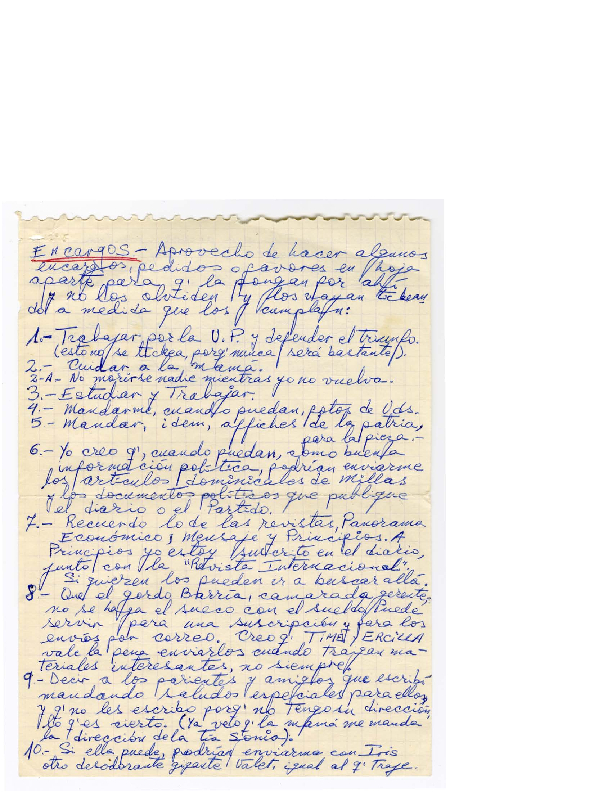 Encargos.- Aprovecho de hacer algunos
encargos, pedidos o favores en hoja
aparte para q' la pongan por ahí
y no los olviden y los vayan tickean
do a medida que los cumplan:
1.- Trabajar por la U.P. y defender el triunfo.
(esto no se tickea, porq' nunca será bastante).
2.- Cuidar a la mamá.
2-A- No morirse nadie mientras yo no vuelva.
3.- Estudiar y Trabajar.
4.- Mandarme, cuando puedan, fotos de Uds.
5.- Mandar, idem, affiches de la patria,
para la pieza.-
6.- Yo creo q', cuando puedan, como buena
información política, podrían enviarme
los artículos dominicales de Millas
y los documentos políticos que publique
el diario o el Partido.
7.- Recuerdo lo de las revistas, Panorama
Económico, Mensaje y Principios. A
Principios yo estoy suscrito en el diario,
junto con la "Revista Internacional".
Si quieren los pueden ir a buscar allá.
8.- Que el gordo Barría, camarada gerente,
no se haga el sueco con el sueldo. Puede
servir para una suscripción y para los
envíos por correo. Creo q' TIME y ERCILLA
vale la pena enviarlos cuando traigan ma-
teriales interesantes, no siempre.
9.- Decir a los parientes y amigos que escribí
mandando saludos especiales para ellos,
y q' no les escribo porq' no tengo su dirección,
lo q' es cierto. (Ya veo q' la mamá me manda
la dirección de la tía Sonia).
10.- Si ella puede, podrían enviarme con Iris
otro desodorante gigante Valet, igual al q' traje.